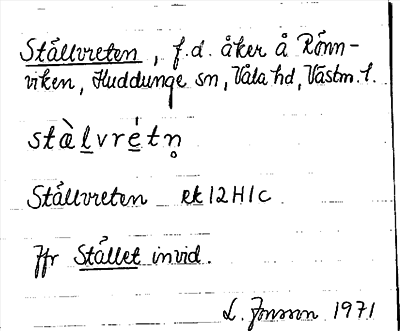 Stållvreten, f.d. åker å Rönn-
viken, Huddunge sn, Våla hd, Västm. l.
stàlvrétn̥
Stållvreten ek 12H1c
Jfr Stållet invid.
L. Jonsson 1971